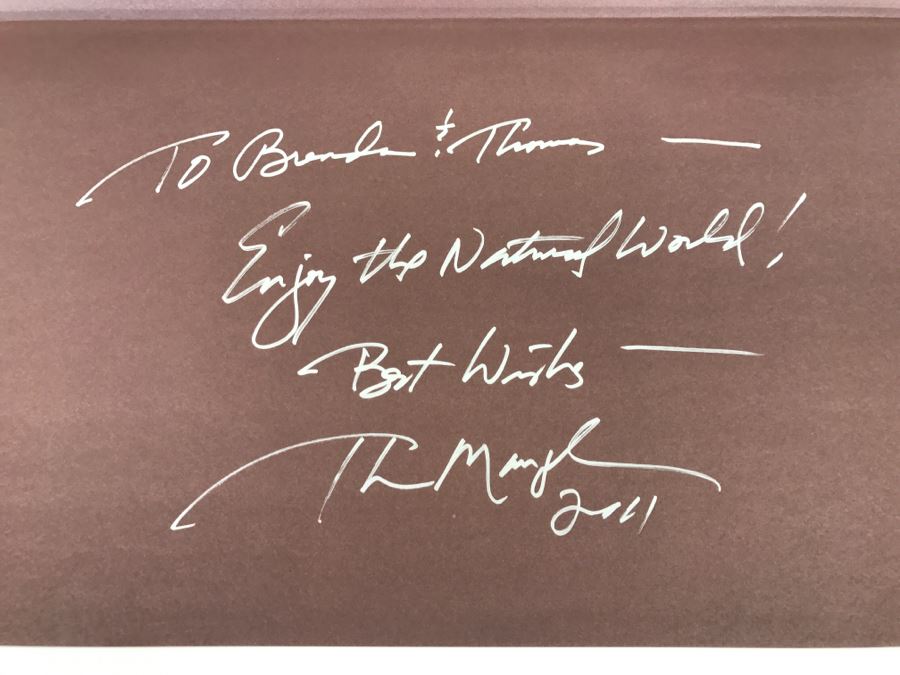 To Brenda & Thomas —
Enjoy the Natural World!
Best Wishes —
2011